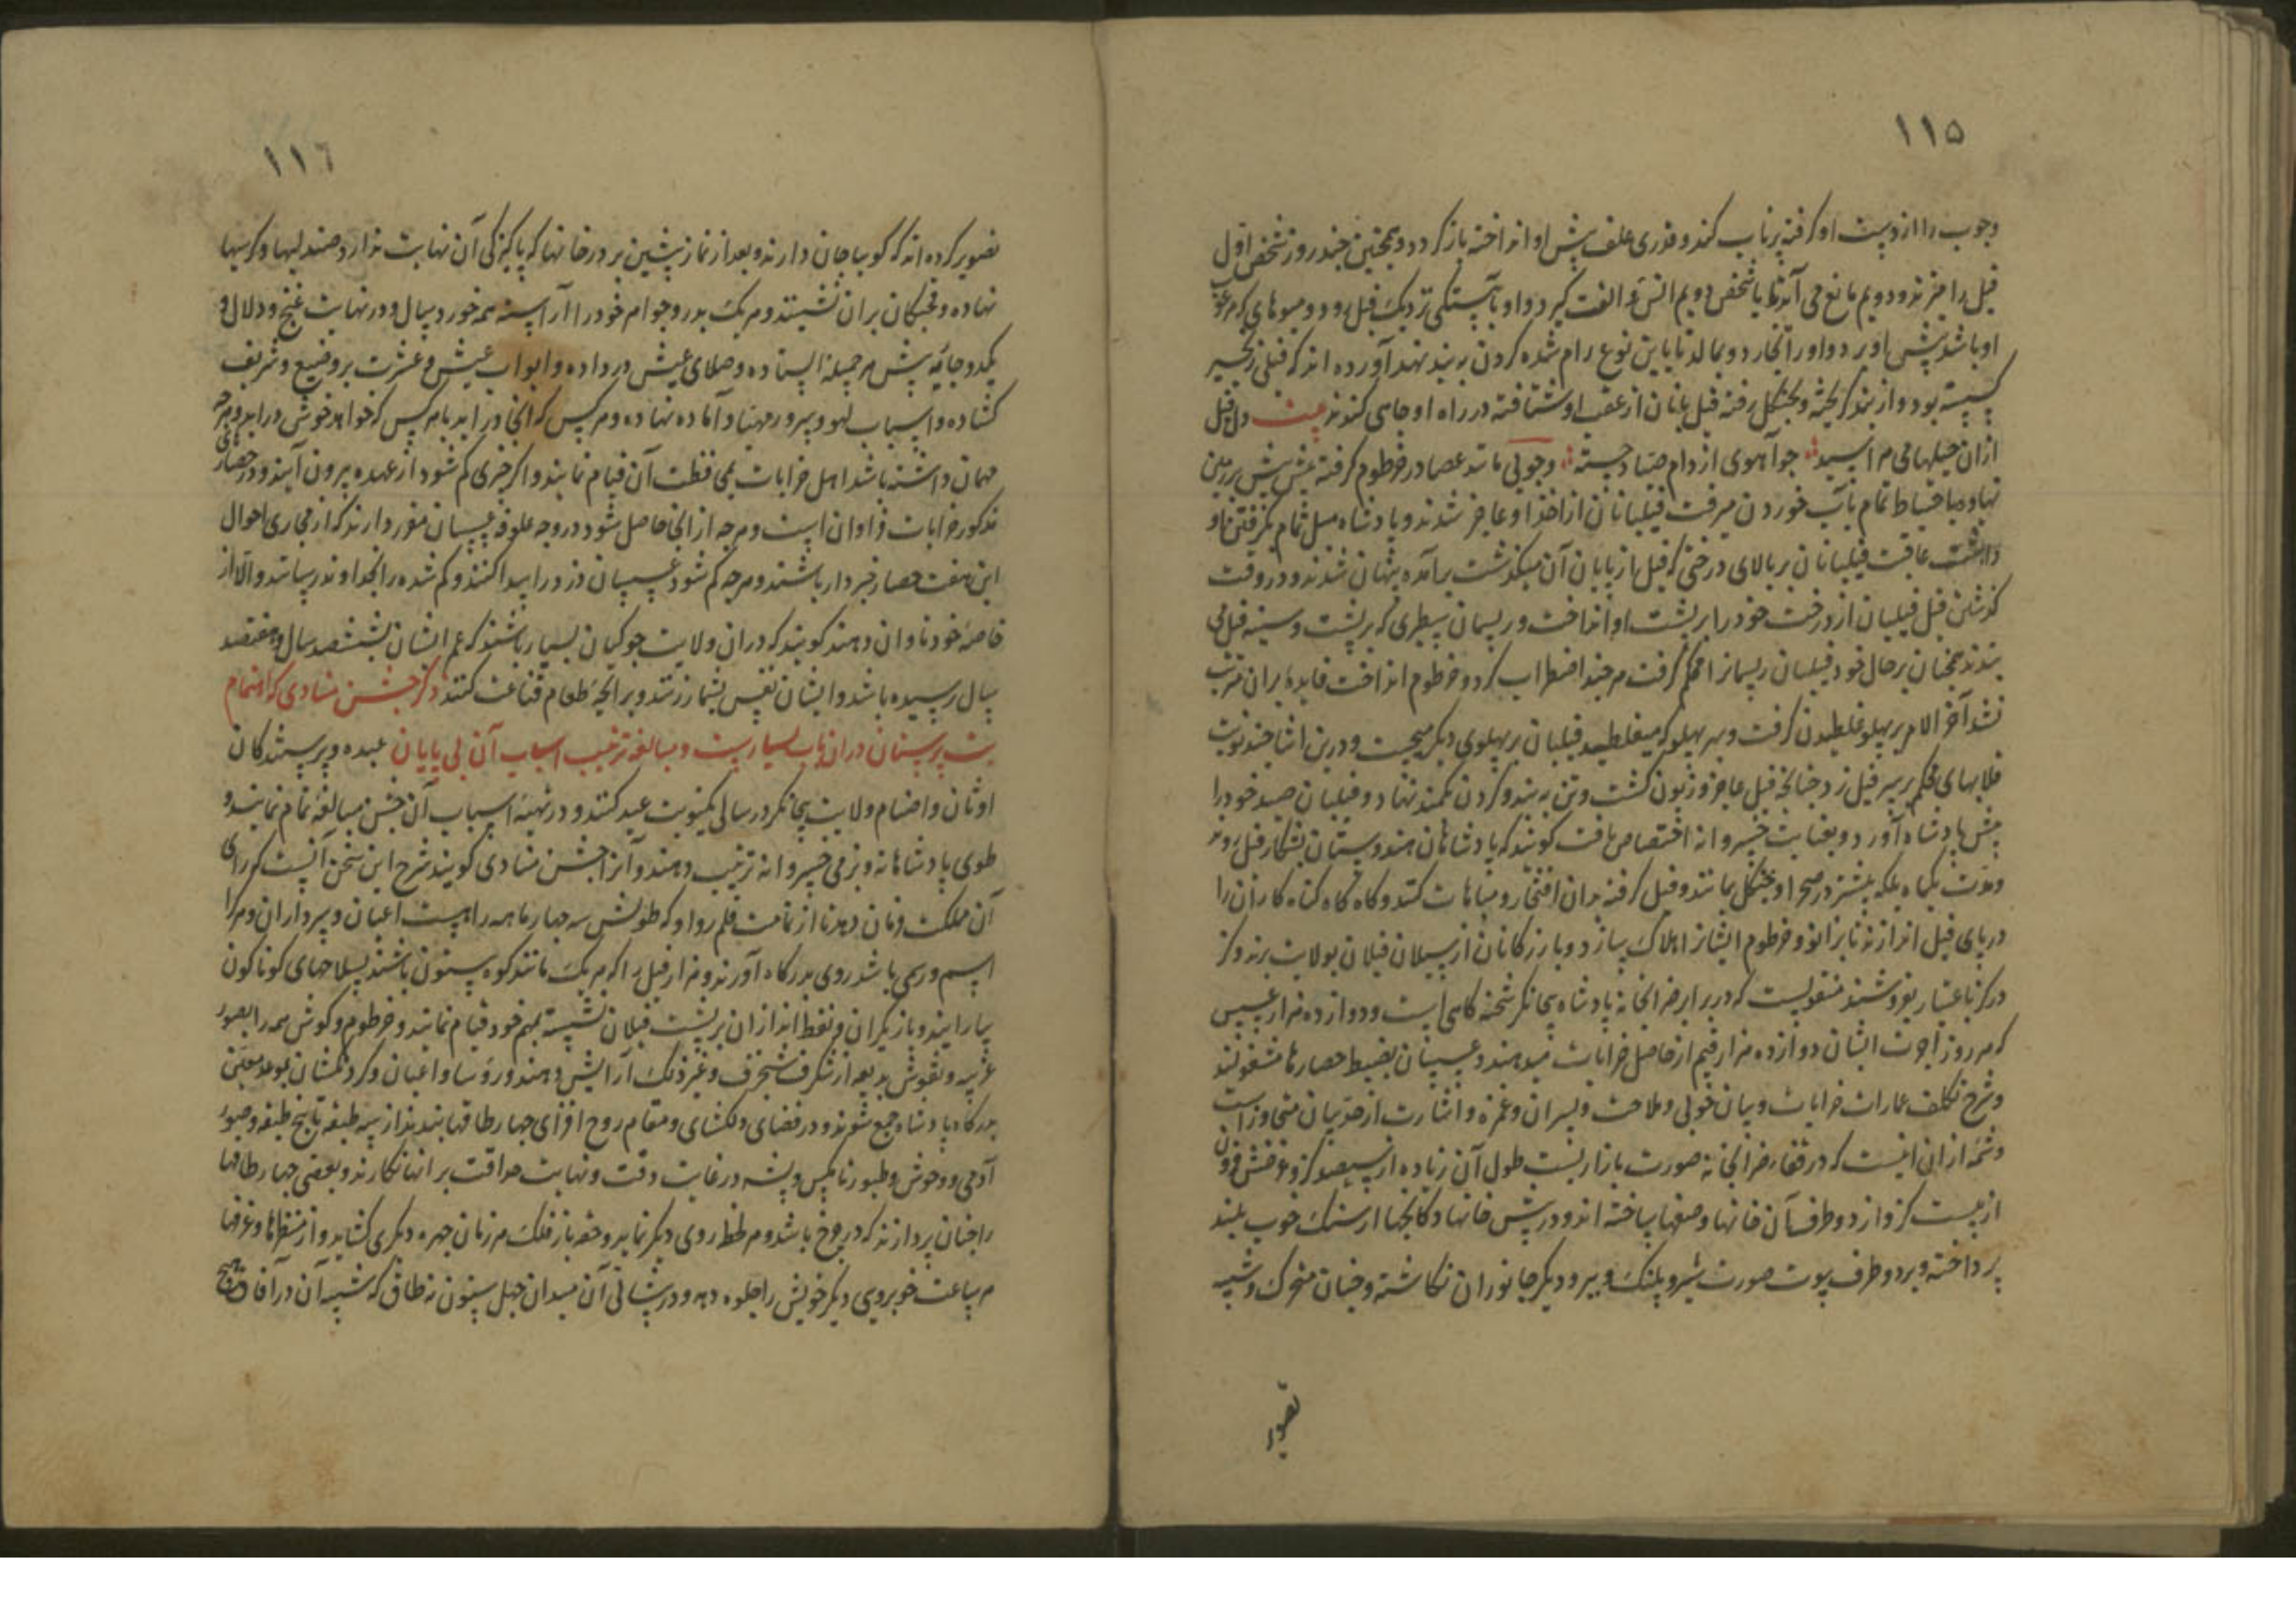 ۱۱۵
وچوب را از دست او گرفته پرتاب کند و قدری علف پیش او انداخته باز گردد و همچنین چند روز شخص اول
فیل را میزند و دویم مانع می آید تا با شخص دویم انس و الفت گیرد و او بآهستگی نزدیک فیل رود و میوهای که مرغوب
او باشد پیش او برد و او را بخارد و بمالد تا باین نوع رام شده گردن به بند نهد آورده اند که فیلی زنجیر
گسسته بود و از بند گریخته و بجنگل رفته فیل بانان از عقب او شتافته در راه او چاهی کندند بیت دل فیل
ازان حیلها می هراسید چو آهوی از دام صیاد جسته وچوبی مانند عصا در خرطوم گرفته پیش پیش بر زمین
نهاده باحتیاط تمام بآب خوردن میرفت فیلبانان از اخذ او عاجز شدند و پادشاه میل تمام بگرفتن او
داشت عاقبت فیلبانان بر بالای درختی که فیل از پایان آن میگذشت برآمده پنهان شدند و در وقت
گذشتن فیل فیلبان از درخت خود را بر پشت او انداخت و ریسمان سطبری که بر پشت و سینه فیل می
بندند همچنان بر حال خود فیلبان ریسمانرا محکم گرفت هر چند اضطراب کرد و خرطوم انداخت فایده بران مترتب
نشد آخر الامر بر پهلو غلطیدن گرفت و بهر پهلو که میغلطید فیلبان بر پهلوی دیگر میجست و درین اثنا چند نوبت
قلابهای محکم بر سر فیل زد چنانچه فیل عاجز و زبون گشت و تن به بند و گردن بکمند نهاد و فیلبان صید خود را
پیش پادشاه آورد و بعنایت خسروانه اختصاص یافت گویند که پادشاهان هندوستان بشکار فیل روند
ومدت یکماه بلکه بیشتر در صحرا و جنگل بمانند و فیل گرفته بدان افتخار و مباهات کنند و گاه گاه گناه کاران را
در پای فیل اندازند تا بزانو و خرطوم ایشانرا هلاک سازد و بازرگانان از سیلان فیلان بولایت برند و گز
در گز باعتبار بفروشند منقولست که در برابر ضرابخانه پادشاه بیجانگر شحنه گاهی است و دوازده هزار عسس
که هر روز اجرت ایشان دوازده هزار قیم از حاصل خرابات میدهند و عسسان بضبط حصارها مشغولند
وشرح تکلف عمارات خرابات و بیان خوبی و ملاحت دلبران و غمزه و اشارت از حد بیان متجاوز است
وشمه ازان اینست که در قفا ضرابخانه صورت بازاریست طول آن زیاده از سیصد گز و عرضش فزون
از بیست گز و از دو طرف آن خانها و صفها ساخته اند و در پیش خانها دکانچها از سنگ خوب بلند
پرداخته و بر دو طرف پوت صورت شیر و پلنگ و ببر و دیگر جانوران نگاشته و چنان متحرک و شبیه
تصویر
۱۱٦
تصویر کرده اند که گویا جان دارند و بعد از نماز پیشین بر در خانها که پاکیزگی آن نهایت ندارد صندلیها و کرسیها
نهاده و قحبگان بران نشینند و هر یک بدر و جواهر خود را آراسته همه خورد سال و در نهایت غنج و دلال و
یکدو جاریه پیش هر جمیله ایستاده و صلای عیش در داده و ابواب عیش و عشرت بر وضیع و شریف
گشاده و اسباب لهو و سرور مهیا و آماده نهاده و هر کس که انجا در اید با هر کس که خواهد خوش در اید و هر چه
همان داشته باشد اهل خرابات بمحافظت آن قیام نمایند و اگر چیزی گم شود از عهده بیرون آیند و در حصارهای
مذکور خرابات فراوان است و هر چه از انجا حاصل شود در وجه علوفه عسسان مقرر دارند که از مجاری احوال
این هفت حصار خبردار باشند و هر چه گم شود عسسان دزد را پیدا کنند و گم شده را بخداوند رسانند و الا از
خاصه خود تاوان دهند گویند که دران ولایت جوکیان بسیار باشند که عمر ایشان بششصد سال و هفتصد
سال رسیده باشد و ایشان نفس بشمار زنند و براتحه طعام قناعت کنند ذکر جشن مناوی که اهتمام
بت پرستان دران باب بسیارست و مبالغه ترتیب اسباب آن بی پایان عبده و پرستندگان
اوثان و اصنام ولایت بیجانگر در سالی یکنوبت عید کنند و در تهیه اسباب آن جشن مبالغه تمام نمایند و
طوی پادشاهانه و بزمی خسروانه ترتیب دهند و آنرا جشن مناوی گویند شرح این سخن آنست که رای
آن مملکت فرمان دهد تا از تمامت قلم رو او که طولش سه چهار ماهه راهست اعیان و سرداران و هر که را
اسم و رسمی باشد روی بدرگاه آورند و هزار فیل را که هر یک مانند کوه بیستون باشند بسلاحهای گوناگون
بیارایند و بازیگران و نفط اندازان بر پشت فیلان نشسته بمهم خود قیام نمایند و خرطوم و گوش همه را بصور
غریبه و نقوش بدیعه از شنگرف و زنجرف و غیر ذلک آرایش دهند و رؤسا و اعیان و گردنکشان بموعد معین
بدرگاه پادشاه جمع شوند و در فضای دلگشای و مقام روح افزای چهار طاقها بندند از سه طبقه تا پنج طبقه و صور
آدمی و وحوش و طیور تا مگس و پشه در غایت دقت و نهایت حذاقت بر انها نگارند و بعضی چهار طاقها
را چنان پردازند که در چرخ باشد و هر لحظه روی دیگر نماید و حقه باز فلک هر زمان چهره دیگری گشاید و از منظرها و غرفها
هر ساعت خوبروی دیگر خویش را جلوه دهد و در پیشانی آن میدان چهل ستون نه طاق که شبیه آن در آفاق هیچ